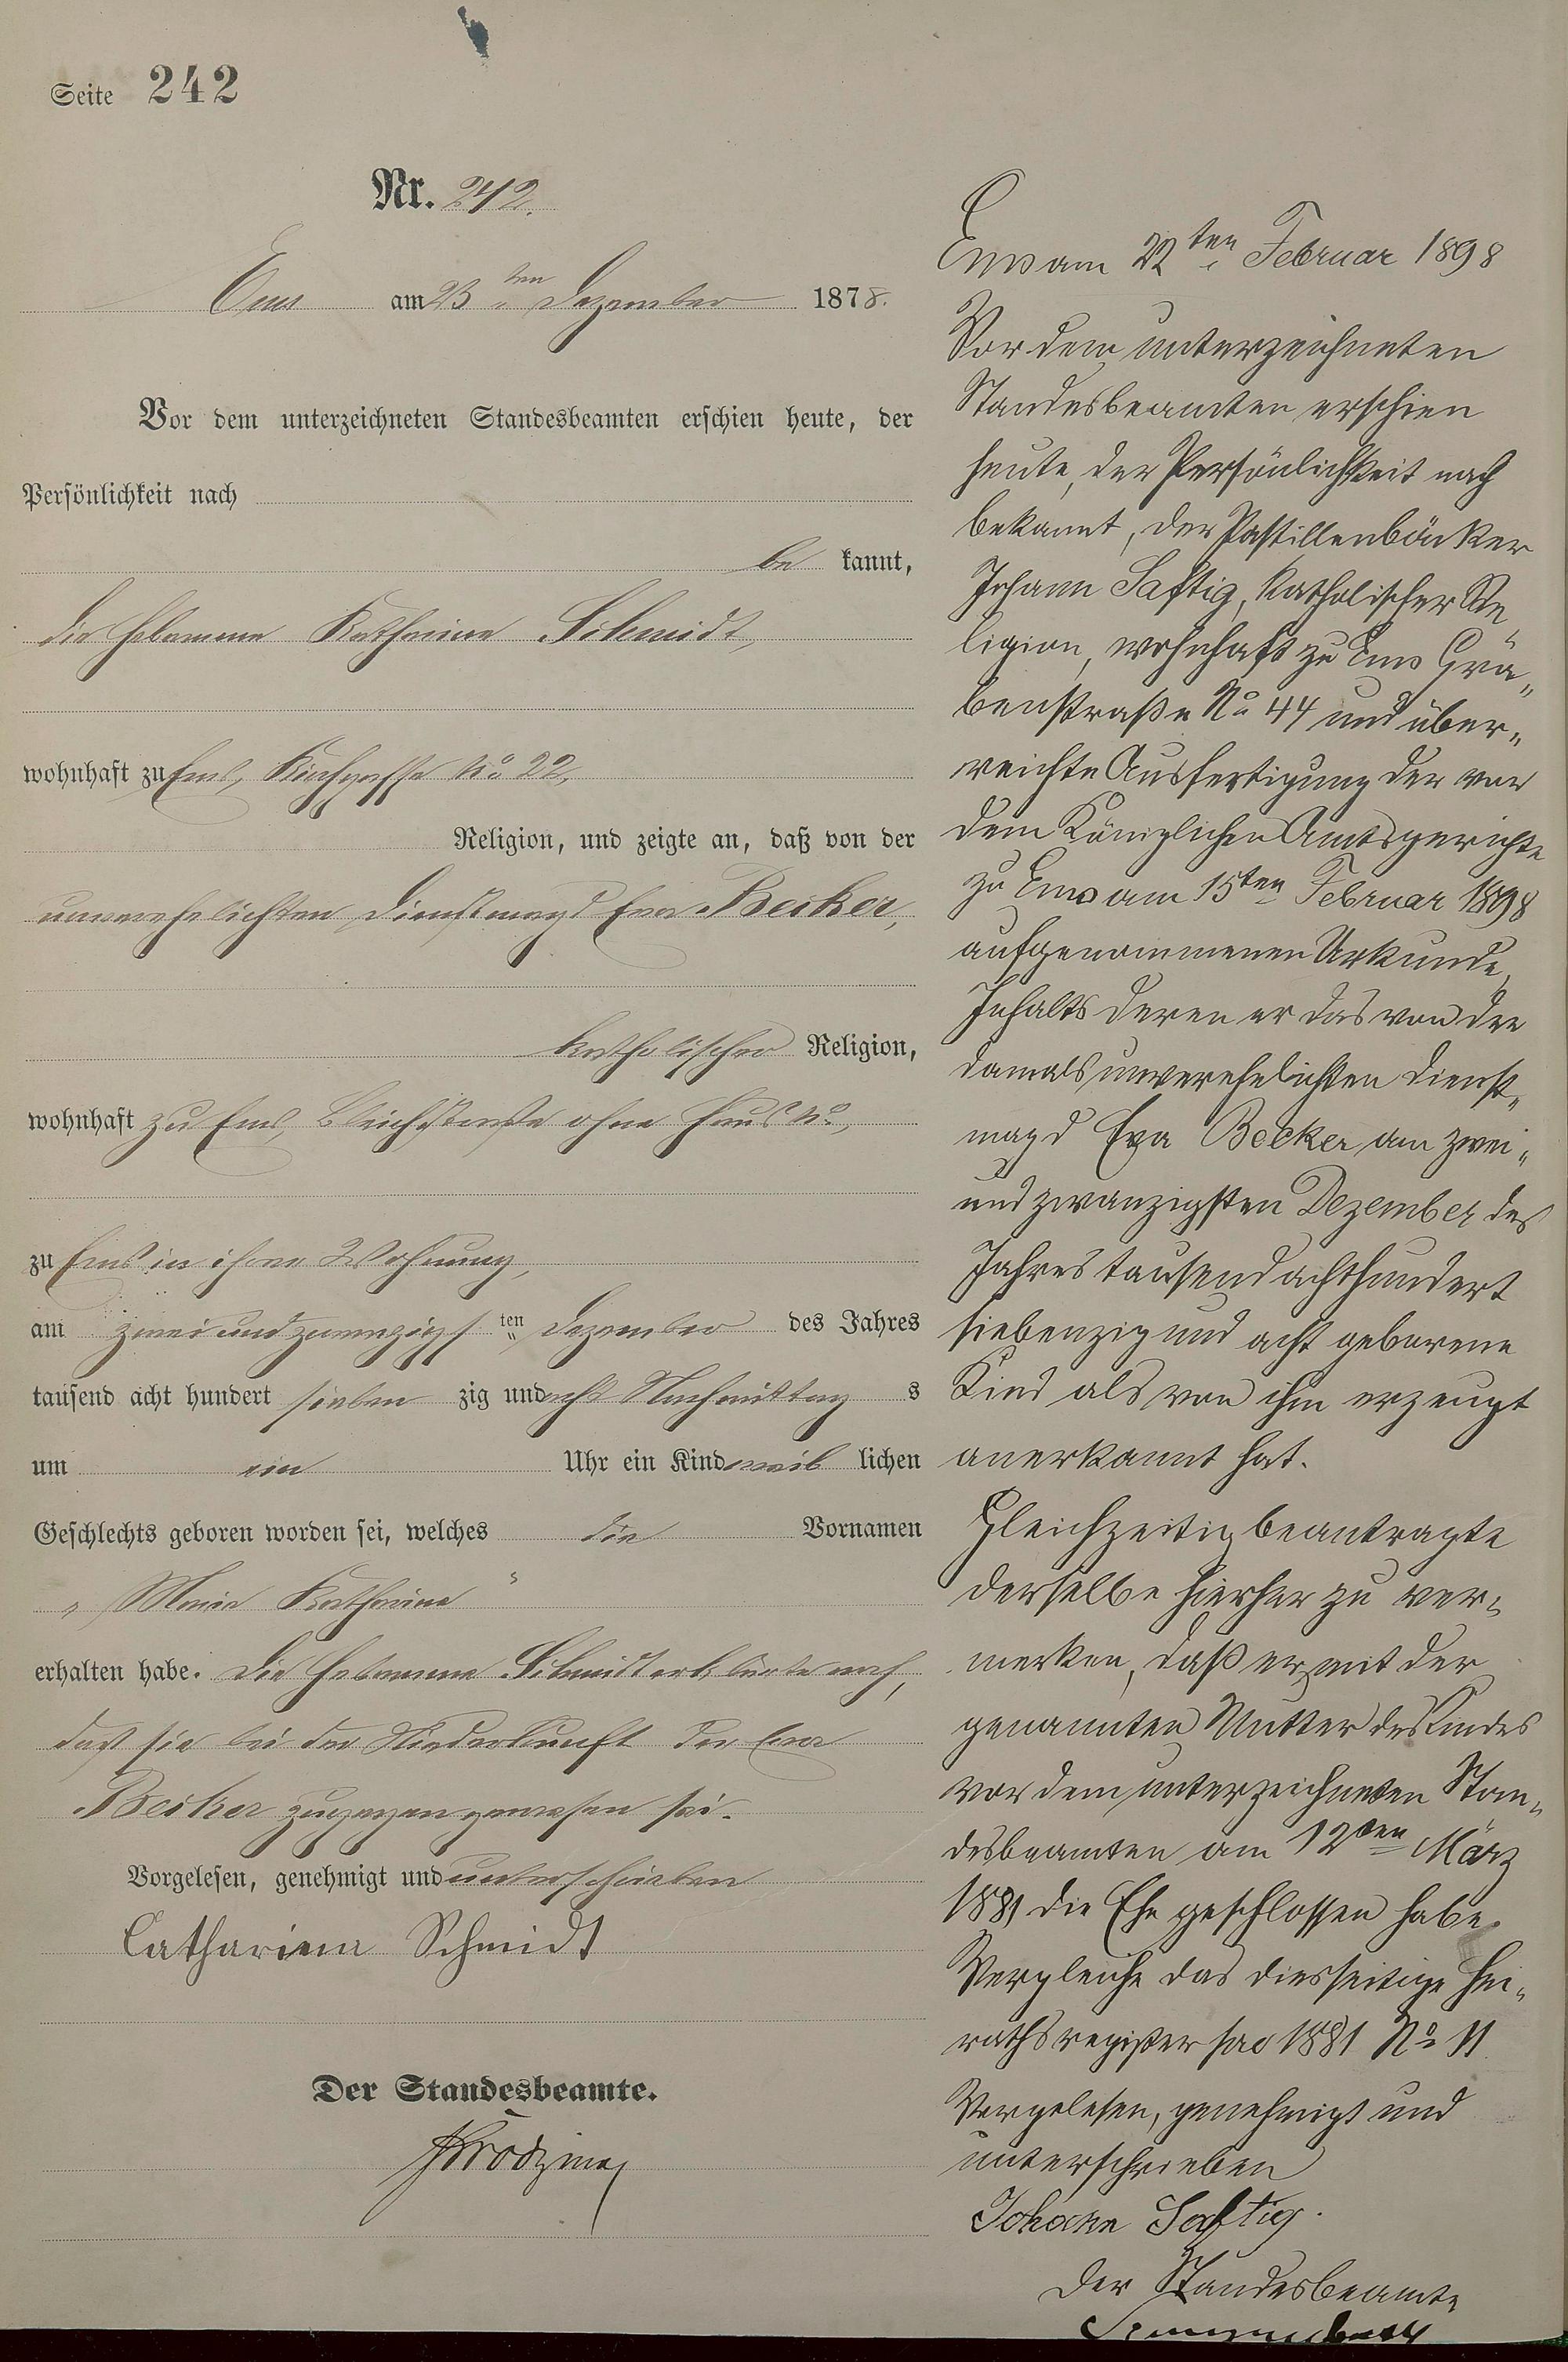 Seite 242
Nr. 242.
Ems am 23 ten Dezember 1878.
Vor dem unterzeichneten Standesbeamten erschien heute, der
Persönlichkeit nach
be kannt,
die Hebamme Katharine Schmidt,
wohnhaft zu Ems, Kirchgasse No 22,
Religion, und zeigte an, daß von der
unverehelichten Dienstmagd Eva Becker,
katholischer Religion,
wohnhaft zu Ems, Bleichstraße ohne Haus No,
zu Ems in ihrer Wohnung,
am zwei und zwanzigs ten Dezember des Jahres
tausend acht hundert sieben zig und acht Nachmittag s
um ein Uhr ein Kind weib lichen
Geschlechts geboren worden sei, welches die Vornamen
„ Maria Katharina “
erhalten habe. Die Hebamme Schmidt erklärte noch,
daß sie bei der Niederkunft der Eva
Becker zugegen gewesen sei.
Vorgelesen, genehmigt und unterschrieben
Catharina Schmidt
Der Standesbeamte.
Ems am 22ten Februar 1898
Vor dem unterzeichneten
Standesbeamten erschien
heute, der Persönlichkeit nach
bekannt, der Pastillenbäcker
Johann Saftig, katholischer Re„
ligion, wohnhaft zu Ems Grä„
benstraße No 44 und über„
reichte Ausfertigung der vor
dem Königlichen Amtsgerichte
zu Ems am 15ten Februar 1898
aufgenommenen Urkunde,
Inhalts deren er das von der
damals unverehelichten Dienst„
magd Eva Becker am zwei„
und zwanzigsten Dezember des
Jahres tausend achthundert
siebenzig und acht geborene
Kind als von ihm erzeugt
anerkannt hat.
Gleichzeitig beantragte
derselbe hierher zu ver„
merken, daß er mit der
genannten Mutter des Kindes
vor dem unterzeichneten Stan„
desbeamten am 12ten März
1881 die Ehe geschlossen habe.
Vergleiche das diesseitige Hei„
rathsregister pro 1881 No 11
Vorgelesen, genehmigt und
unterschrieben
Johann Saftig.
Der Standesbeamte